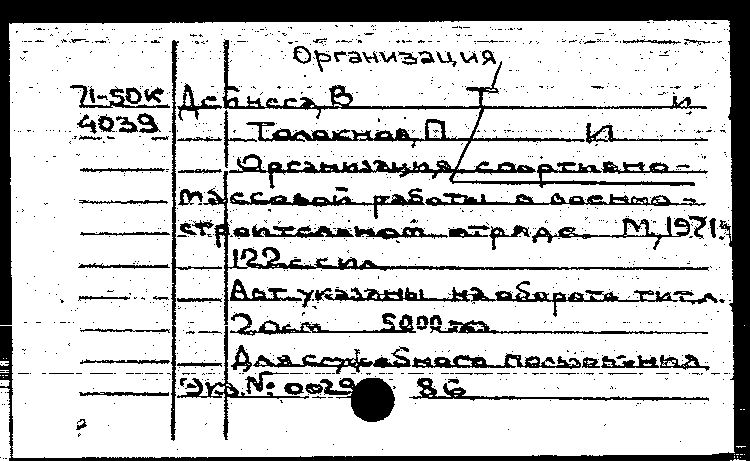 Организация
71-5ДК Дебнесс, В Т и
4039 Толокнов, П И
Организация спортивно-
массовой работы в военно-
строительном отряде. М, 1971.
122 с с ил.
Авт указаны на обороте тит.л.
20см 5000 экз.
Для служебного пользования
Экз.№ 0029 86